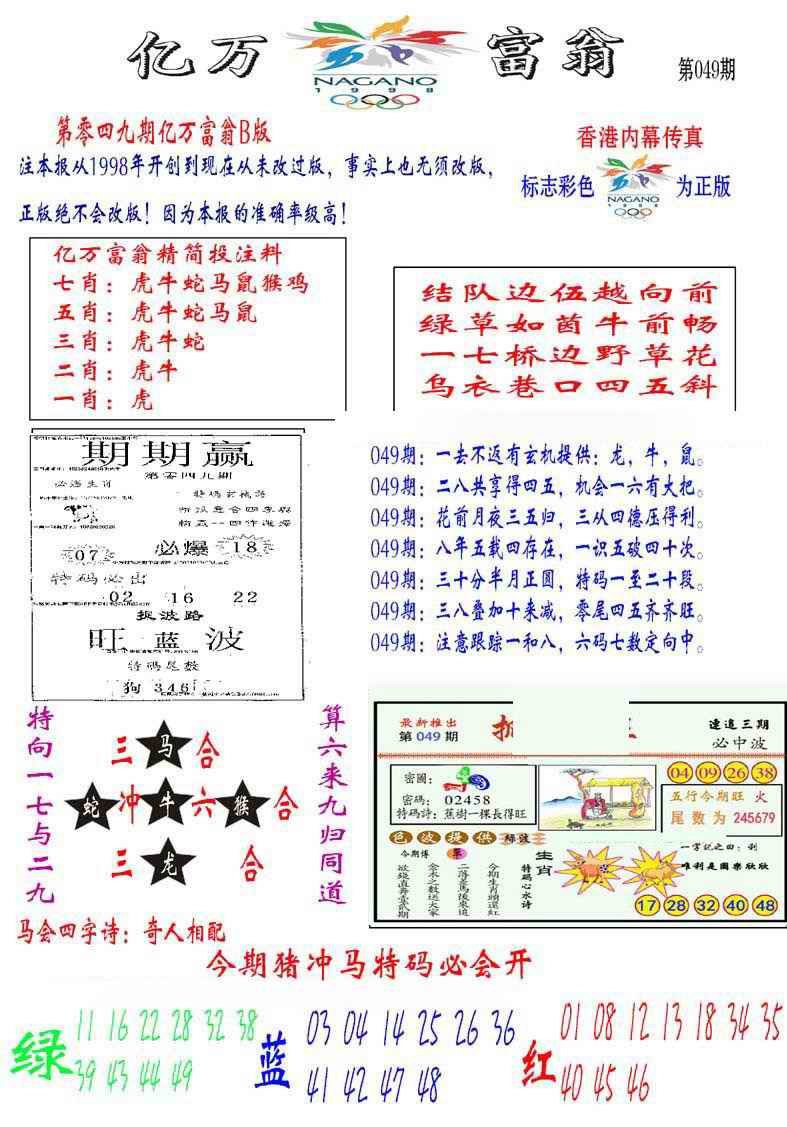 亿万富翁
NAGANO
1998
第049期
第零四九期亿万富翁B版
香港内幕传真
注本报从1998年开创到现在从未改过版，事实上也无须改版，
标志彩色
NAGANO
1998
为正版
正版绝不会改版！因为本报的准确率级高！
亿万富翁精简投注料
七肖：虎牛蛇马鼠猴鸡
五肖：虎牛蛇马鼠
三肖：虎牛蛇
二肖：虎牛
一肖：虎
结队边伍越向前
绿草如茵牛前畅
一七桥边野草花
乌衣巷口四五斜
期期赢
第零四九期
必爆
07
18
特码必出
02 16 22
捉波路
旺蓝波
特码尾数
狗346
049期：一去不返有玄机提供：龙，牛，鼠。
049期：二八共享得四五，机会一六有大把。
049期：花前月夜三五归，三从四德压得利。
049期：八年五载四存在，一识五破四十次。
049期：三十分半月正圆，特码一至二十段。
049期：三八叠加十来减，零尾四五齐齐旺。
049期：注意跟踪一和八，六码七数定向中。
特向一七与二九
三马合
蛇冲牛六猴合
三龙合
算六来九归同道
最新推出
第049期
连追三期
必中波
密圖：
密碼：02458
特碼詩：蕉樹一棵長得旺
04 09 26 38
五行今期旺 火
尾数为 245679
色波提供
绿波
今期博
生肖
特码心水诗
一字記之曰：利
唯利是圖樂欣欣
17 28 32 40 48
马会四字诗：奇人相配
今期猪冲马特码必会开
绿
11 16 22 28 32 38
39 43 44 49
蓝
03 04 14 25 26 36
41 42 47 48
红
01 08 12 13 18 34 35
40 45 46